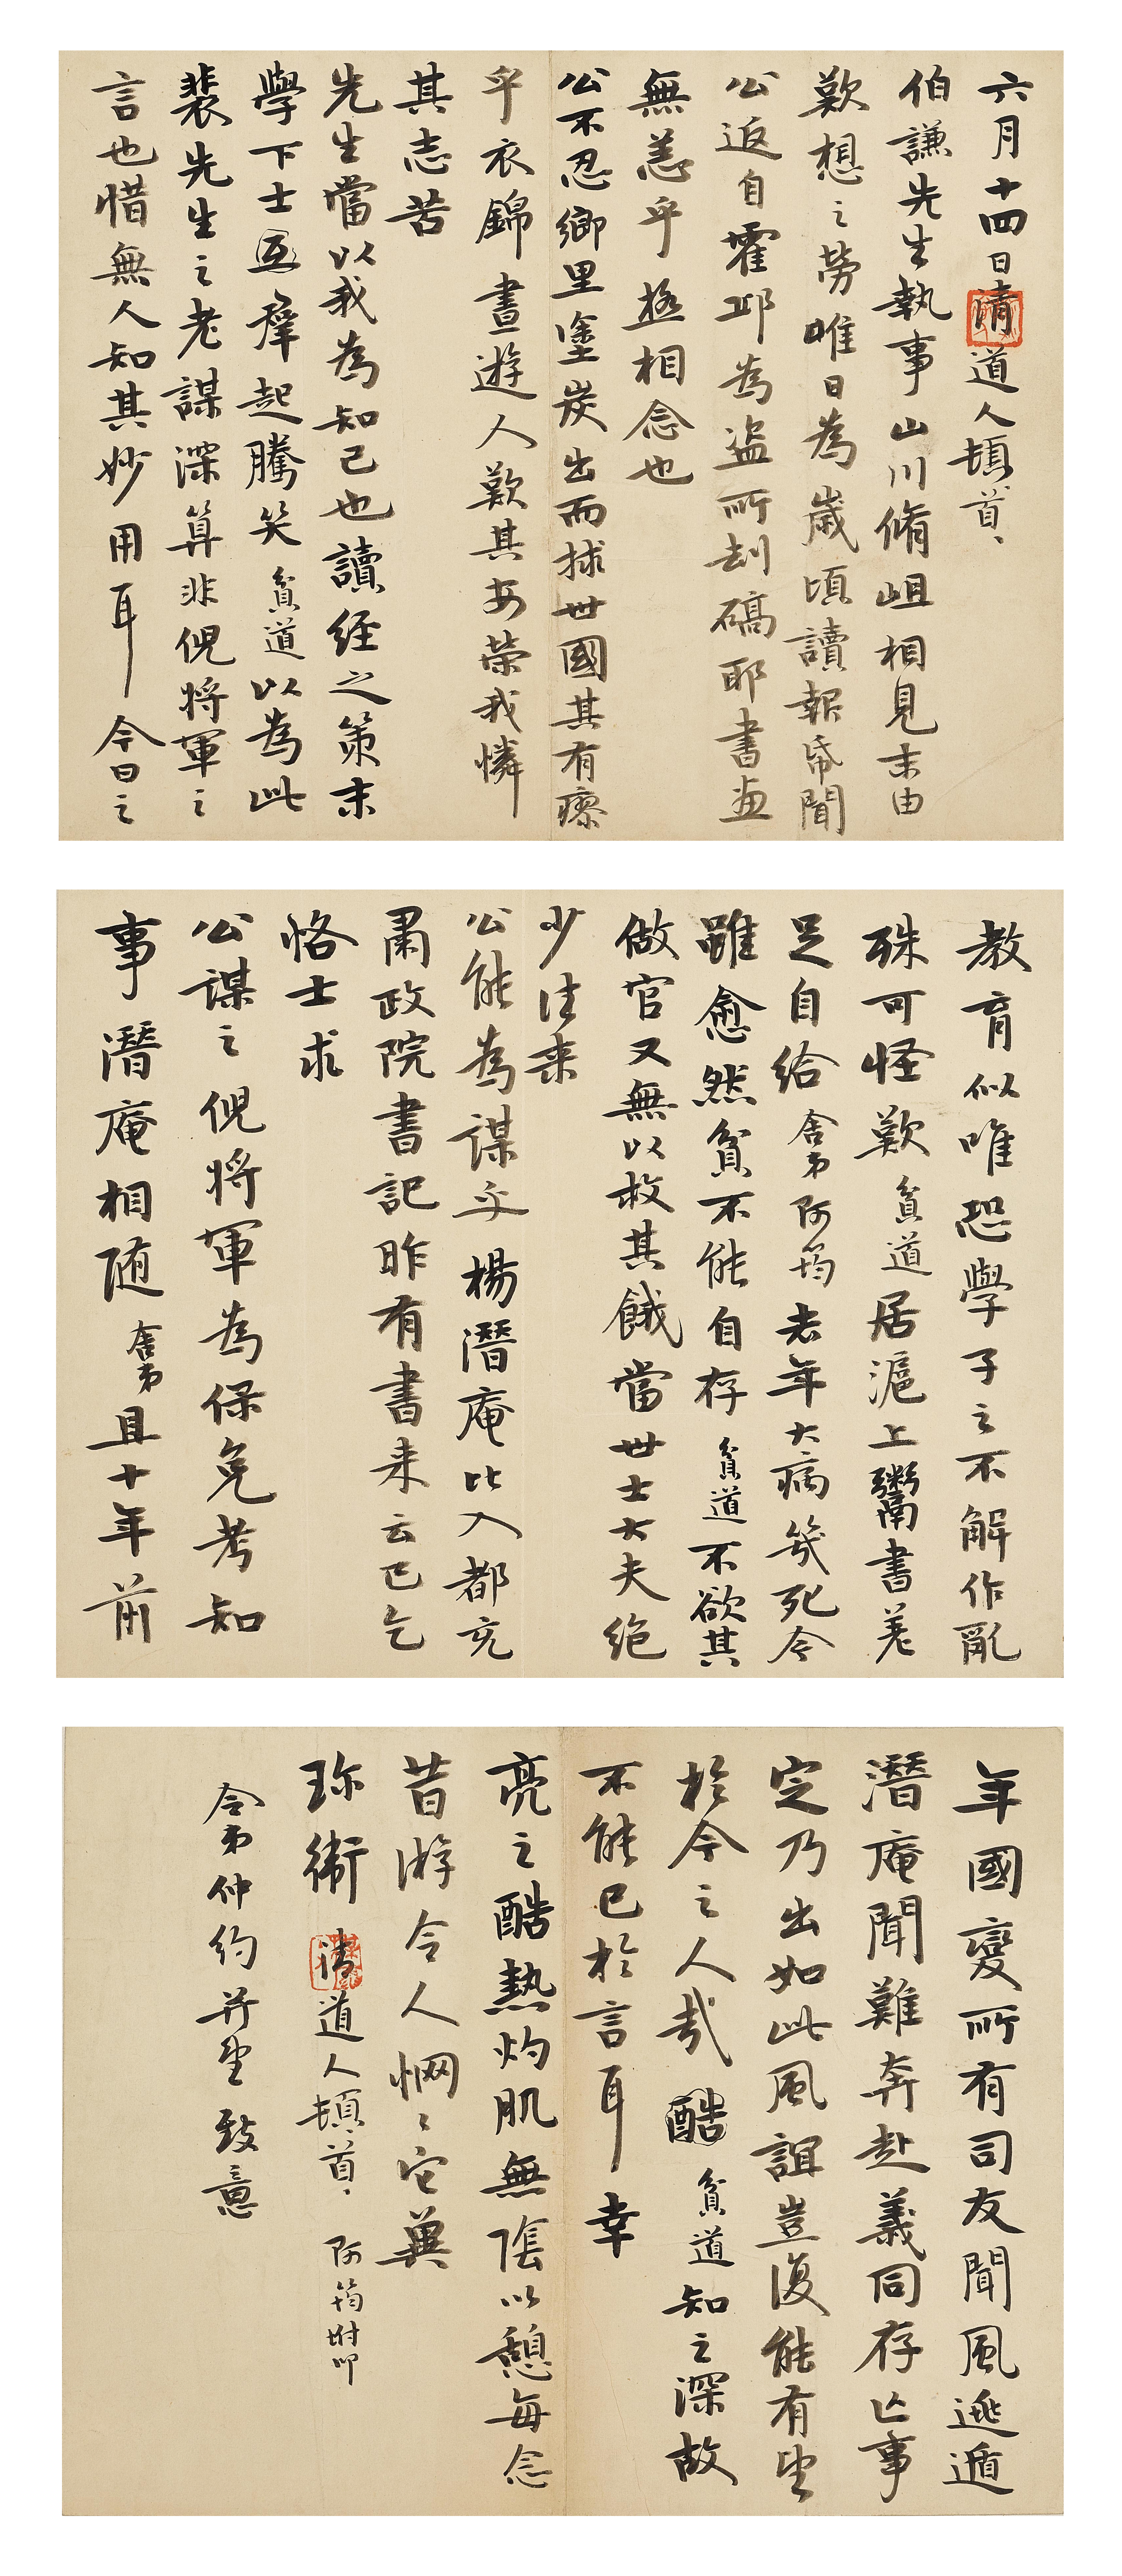 六月十四日清道人頓首、
伯謙先生執事山川脩岨相見末由
歎想之勞唯日為歲頃讀報帋聞
公返自霍邱為盜所刦碻耶書畫
無恙乎極相念也
公不忍鄉里塗炭出而捄世國其有瘳
乎衣錦晝遊人歎其安榮我憐
其志苦
先生當以我為知己也讀經之策末
學下士羣起騰笑貧道以為此
裴先生之老謀深算非倪將軍之
言也惜無人知其妙用耳今日之
教育似唯恐學子之不解作亂
殊可怪歎貧道居滬上鬻書差
足自給舍弟阿筠去年大病幾死今
雖愈然貧不能自存貧道不欲其
做官又無以救其餓當世士大夫絕
少往来
公能為謀乎楊潛庵比入都充
肅政院書記昨有書来云已乞
恪士求
公謀之倪將軍為保免考知
事潛庵相随舍弟且十年前
年國變所有司友聞風逃遁
潛庵聞難奔赴義同存亾事
定乃出如此風誼豈復能有望
於今之人哉貧道知之深故
不能已於言耳幸
亮之酷熱灼肌無陰以憩每念
昔游令人惘〻它冀
珎衛清道人頓首、阿筠坿叩
令弟仲約并望致意